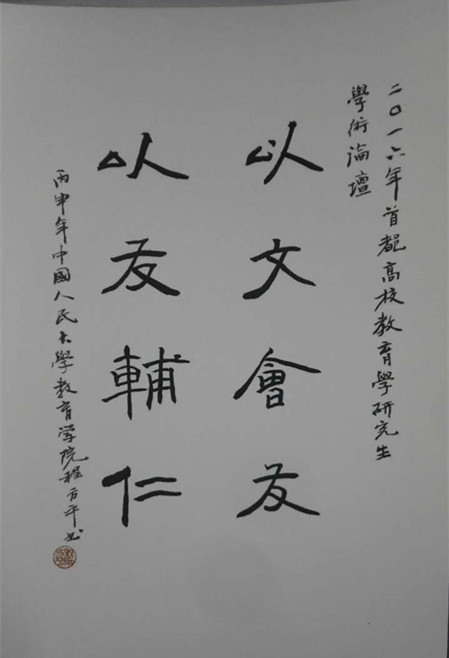 二〇一六年首都高校教育學研究生
學術論壇
以文會友
以友輔仁
丙申年中國人民大學教育学院程方平书